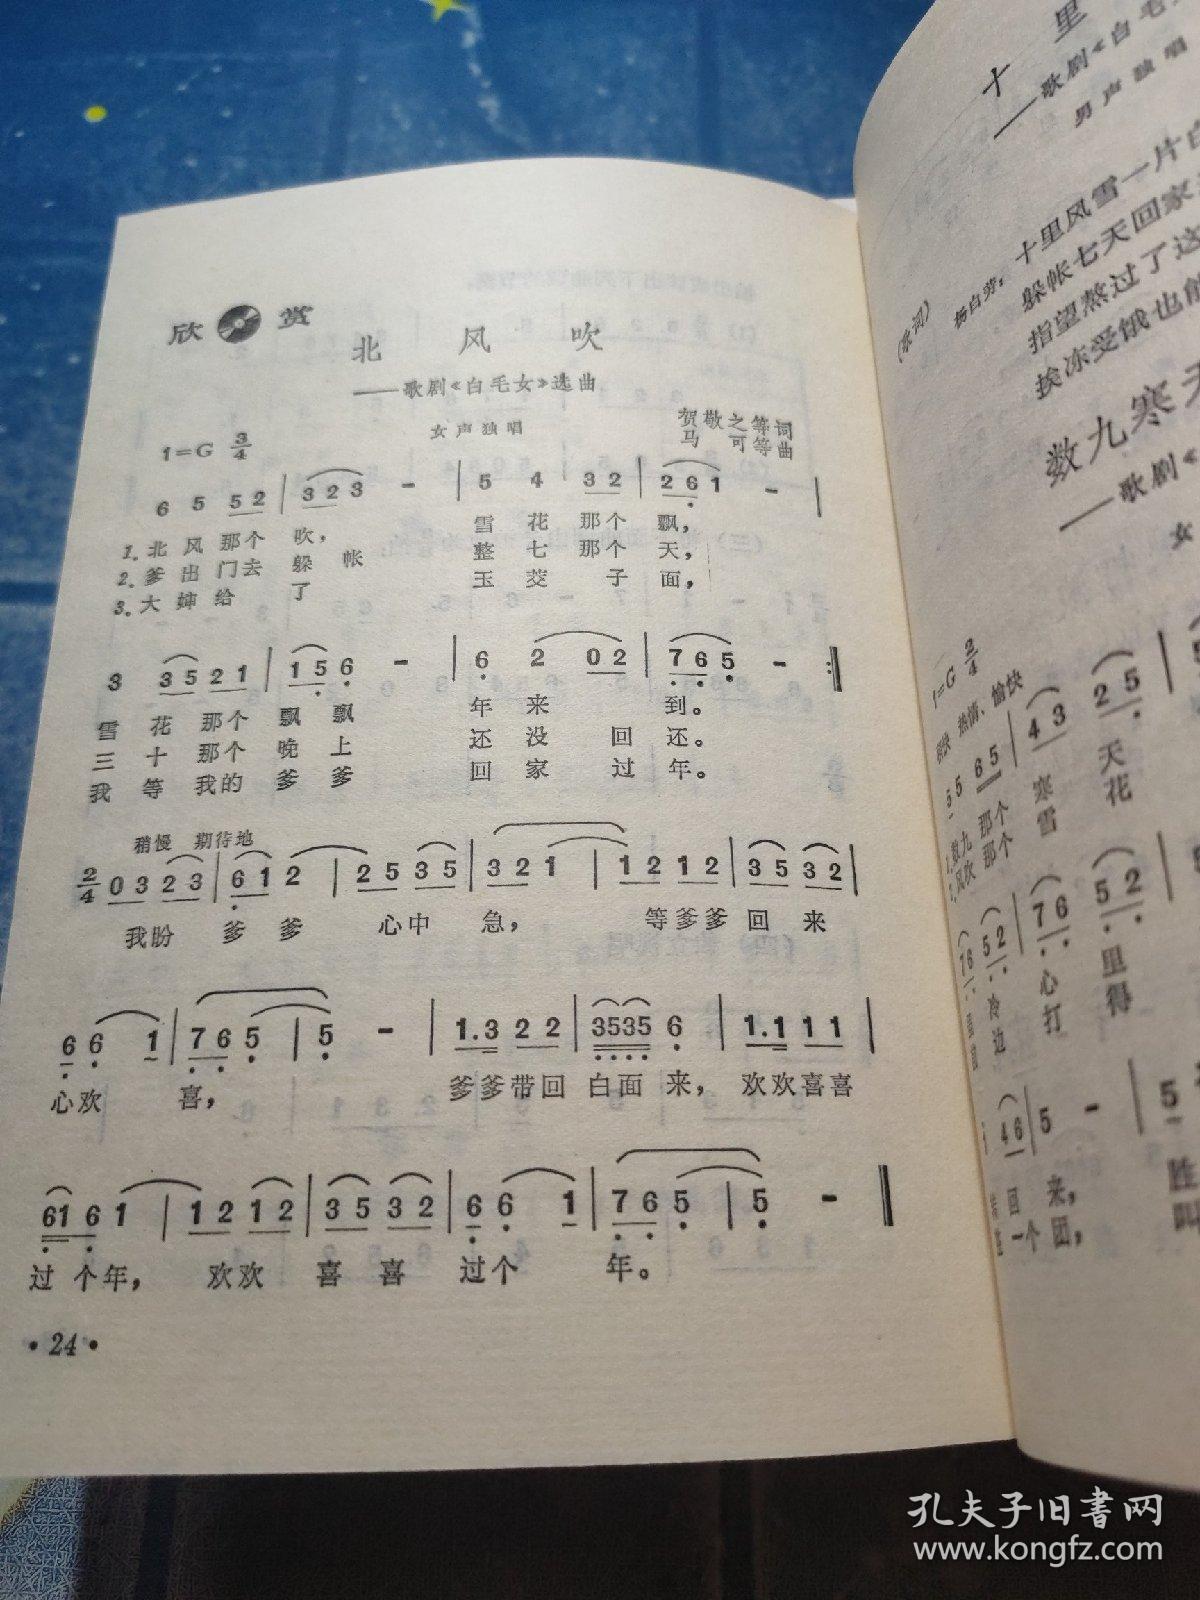 欣赏
北风吹
——歌剧《白毛女》选曲
女声独唱
贺敬之等词
马可等曲
1=G 3/4
6 5 5 2 | 3 2 3 - | 5 4 3 2 | 2 6 1 - |
1.北风那个吹， 雪花那个飘，
2.爹出门去躲帐 整七那个天，
3.大婶给了 玉茭子面，
3 3 5 2 1 | 1 5 6 - | 6 2 0 2 | 7 6 5 - :|
雪花那个飘飘 年来到。
三十那个晚上 还没回还。
我等我的爹爹 回家过年。
稍慢 期待地
2/4 0 3 2 3 | 6 1 2 | 2 5 3 5 | 3 2 1 | 1 2 1 2 | 3 5 3 2 |
我盼爹爹心中急， 等爹爹回来
6 6 1 | 7 6 5 | 5 - | 1.3 2 2 | 3535 6 | 1.1 1 1 |
心欢喜， 爹爹带回白面来，欢欢喜喜
61 6 1 | 1 2 1 2 | 3 5 3 2 | 6 6 1 | 7 6 5 | 5 - ‖
过个年， 欢欢喜喜过个年。
·24·
十里
——歌剧《白毛
男声独唱
（歌词） 杨白劳：十里风雪一片白
躲帐七天回家
指望熬过了这
挨冻受饿也能
数九寒天
——歌剧《
女
1=G 2/4
热情、愉快
5 5 6 5 | 4 3 2 5
1.数九那个寒天
风吹那个雪花
7 6 5 2 | 7 6 5 2
冷心里
边打得
4 6 | 5 - | 5
回来， 胜
一个团， 叫
孔夫子旧书网
www.kongfz.com